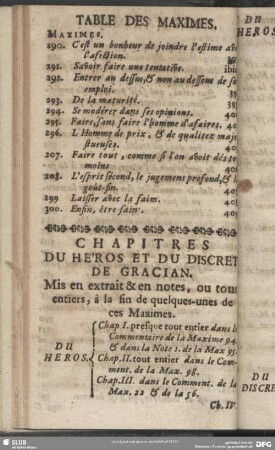 TABLE DES MAXIMES.
MAXIMES.
290. C'est un bonheur de joindre l'estime av
l'afection.
291. Savoir faire une tentative. ibi
292. Entrer au dessus, & non au dessous de so
emploi.
293. De la maturité.
294. Se modérer dans ses opinions. 40
295. Faire, sans faire l'homme d'afaires. 40
296. L'Homme de prix, & de qualitez maje
stueuses. 40
297. Faire tout, comme si l'on avoit des te
moins 40
298. L'esprit fécond, le jugement profond, & l
goût fin. 40
299 Laisser avec la faim. 40
300. Enfin, être saint. 40
CHAPITRES
DU HEROS ET DU DISCRET
DE GRACIAN.
Mis en extrait & en notes, ou tous
entiers, à la fin de quelques-unes de
ces Maximes.
DU HEROS.
Chap I. presque tout entier dans le
Commentaire de la Maxime 94
& dans la Note 1. de la Max 95
Chap. II. tout entier dans le Com-
ment. de la Max. 98.
Chap. III. dans le Comment. de la
Max. 22 & de la 56.
Ch. IV.
DU
HEROS
DU
DISCRE
SLUB